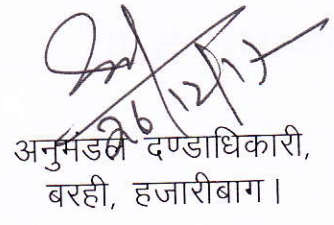 26/12/17
अनुमंडल दण्डाधिकारी,
बरही, हजारीबाग।